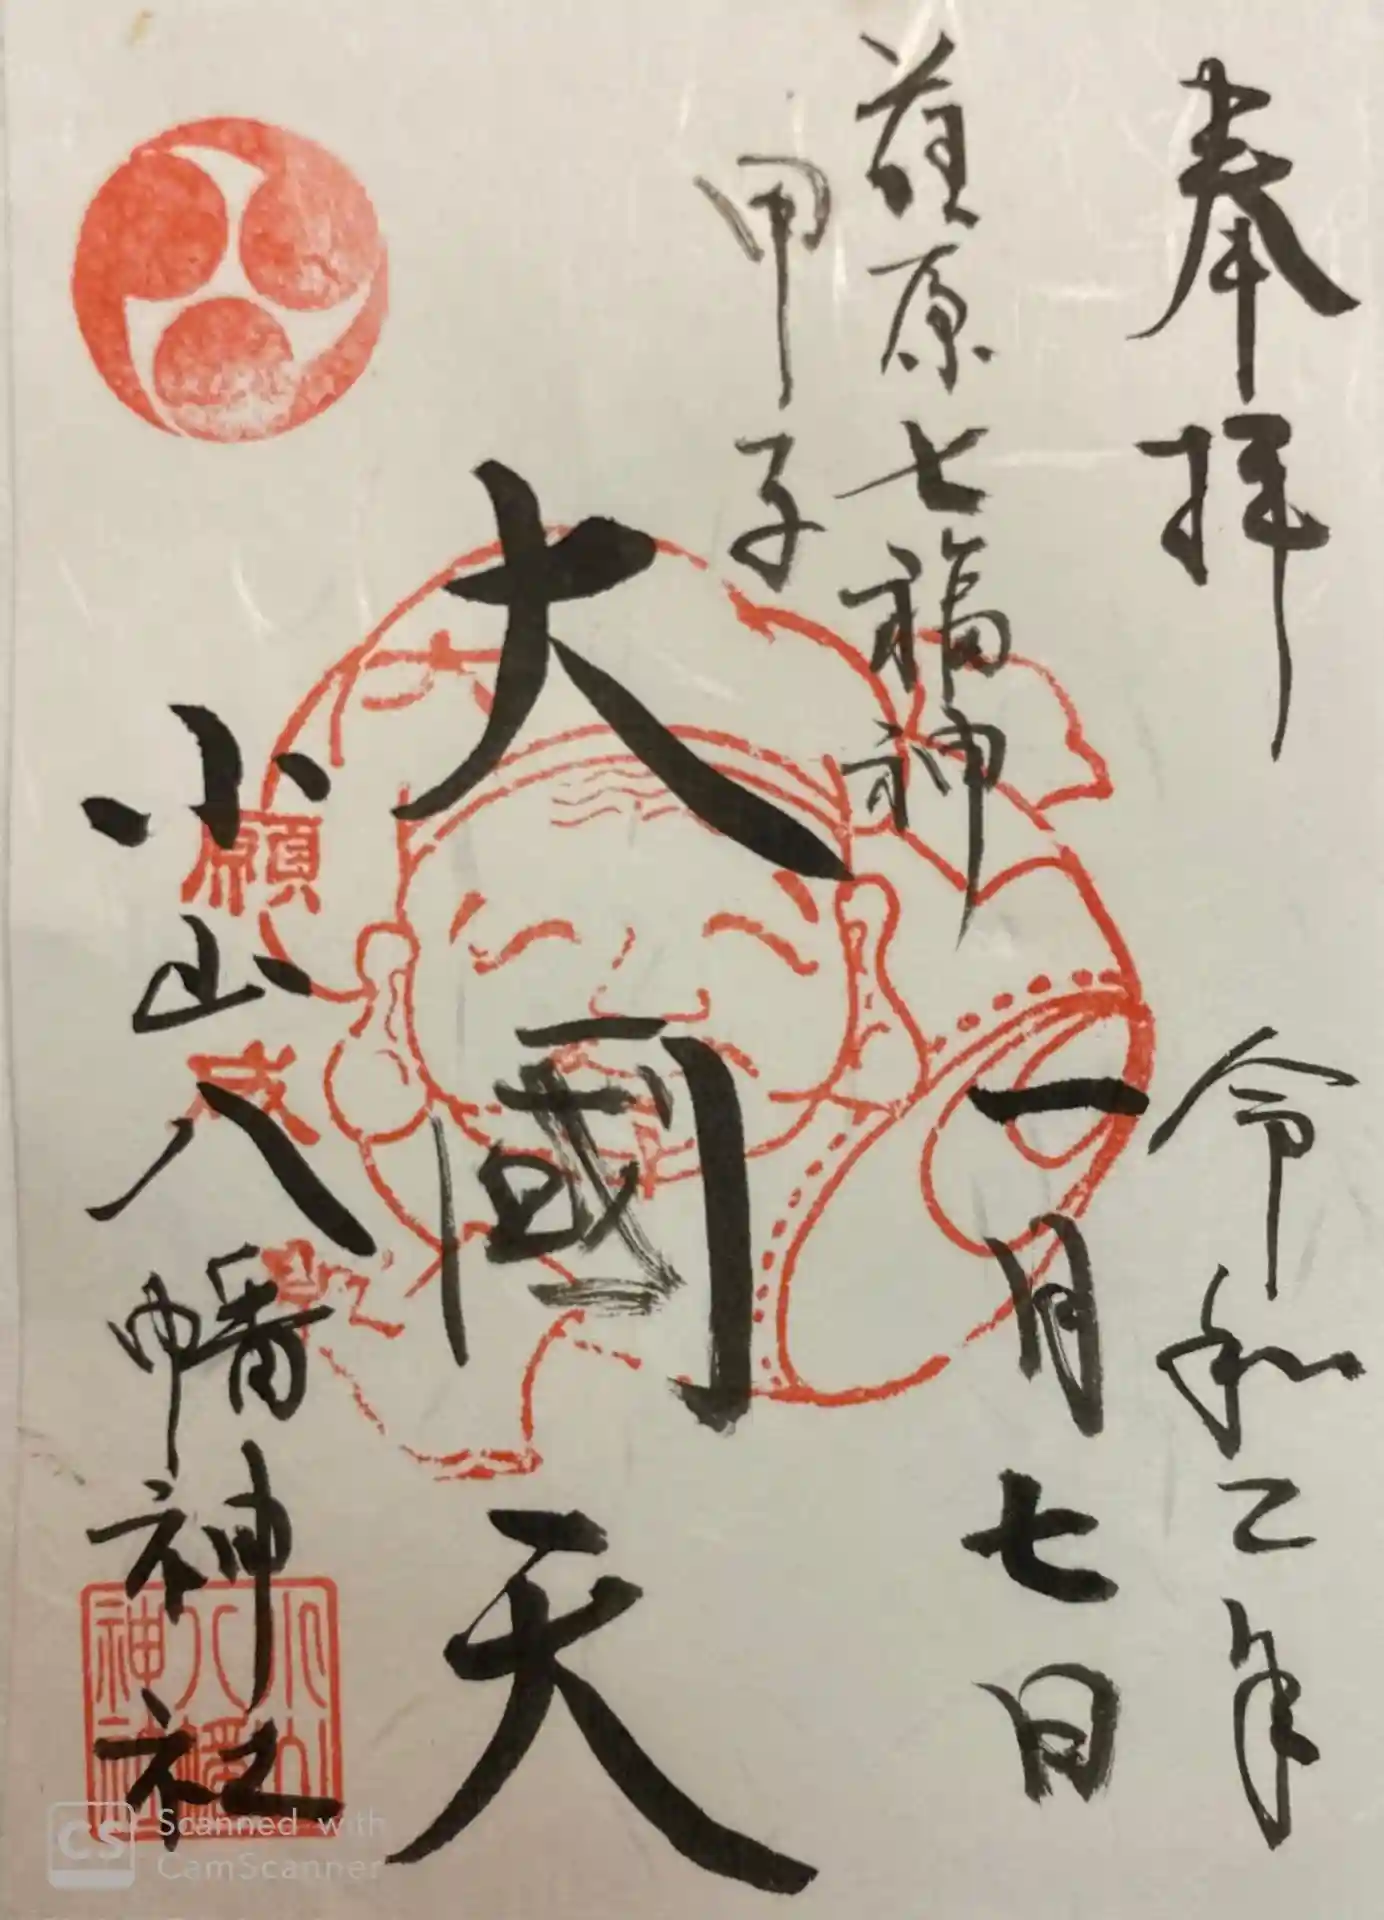 奉拝
令和二年
一月七日
荏原七福神
甲子
大國天
小山八幡神社
願
成
小山
八幡
神社
CS Scanned with
CamScanner